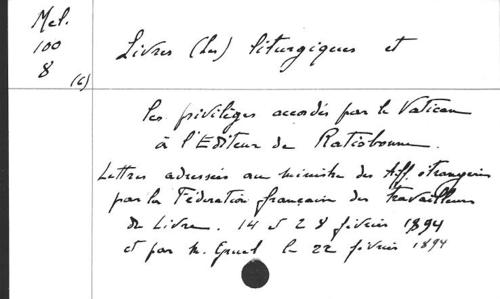 Mel.
100
8 (6)
Livres (Les) liturgiques et
les privilèges accordés par le Vatican
à l'Editeur de Ratisbonne.
Lettres adressées au ministre des Aff. étrangères
par la Fédération française des travailleurs
du Livre. 14 et 28 février 1894
et par M. Gruel le 22 février 1894